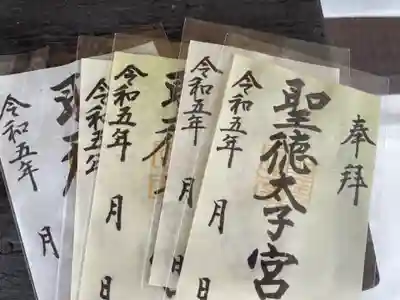 奉拝
聖徳太子宮
令和五年 月 日
令和五年 月
令和五年 月 日
令和五年
令和五年 月